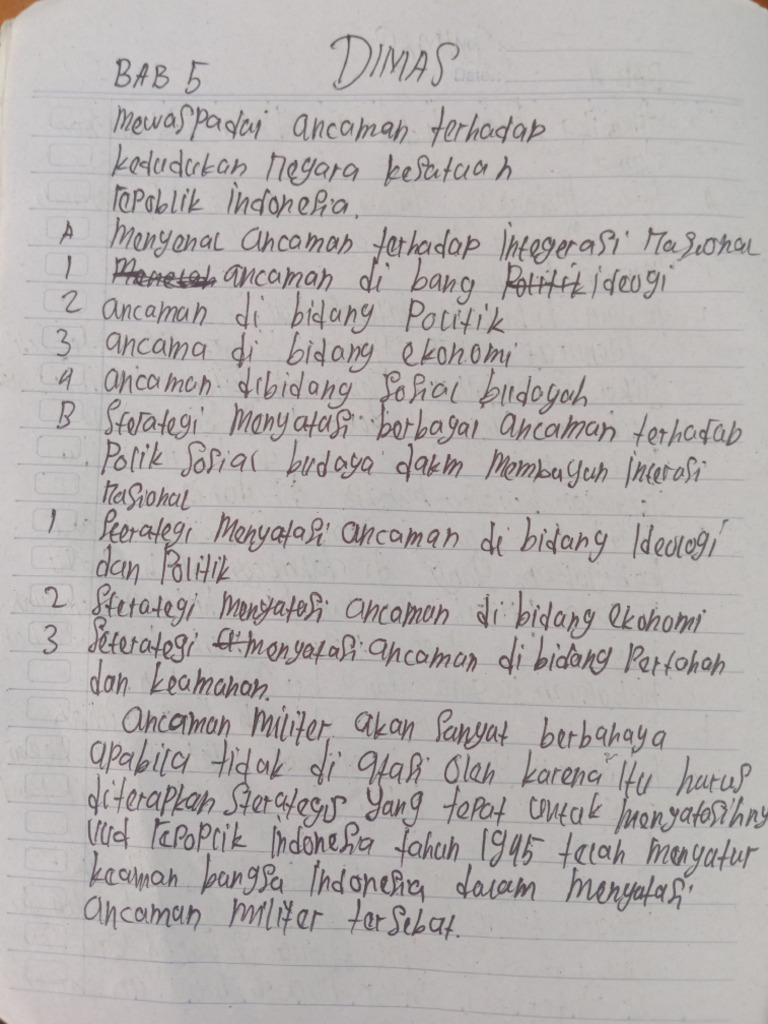 DIMAS
BAB 5
Mewaspadai ancaman terhadap
kedudukan Negara kesatuan
repoblik indonesia.
A Mengenal ancaman terhadap integerasi Nasional
1 ancaman di bang Politik ideogi
2 ancaman di bidang Politik
3 ancama di bidang ekonomi
4 ancaman dibidang Sosial budayah
B Sterategi Mengatasi berbagai ancaman terhadap
Polik Sosial budaya dalam Membagun
nasional
1 Seerategi Mengatasi ancaman di bidang Ideologi
dan Politik
2 Sterategi mengatasi ancaman di bidang ekonomi
3 Seterategi mengatasi ancaman di bidang Pertahan
dan keamanan.
Ancaman militer akan Sangat berbahaya
apabila tidak di atasi Oleh karena itu harus
diterapkan Sterategis yang tepat untuk mengatasihny
uud indonesia tahun 1945 telah mengatur
keaman bangsa indonesia dalam mengatasi
ancaman militer tersebat.